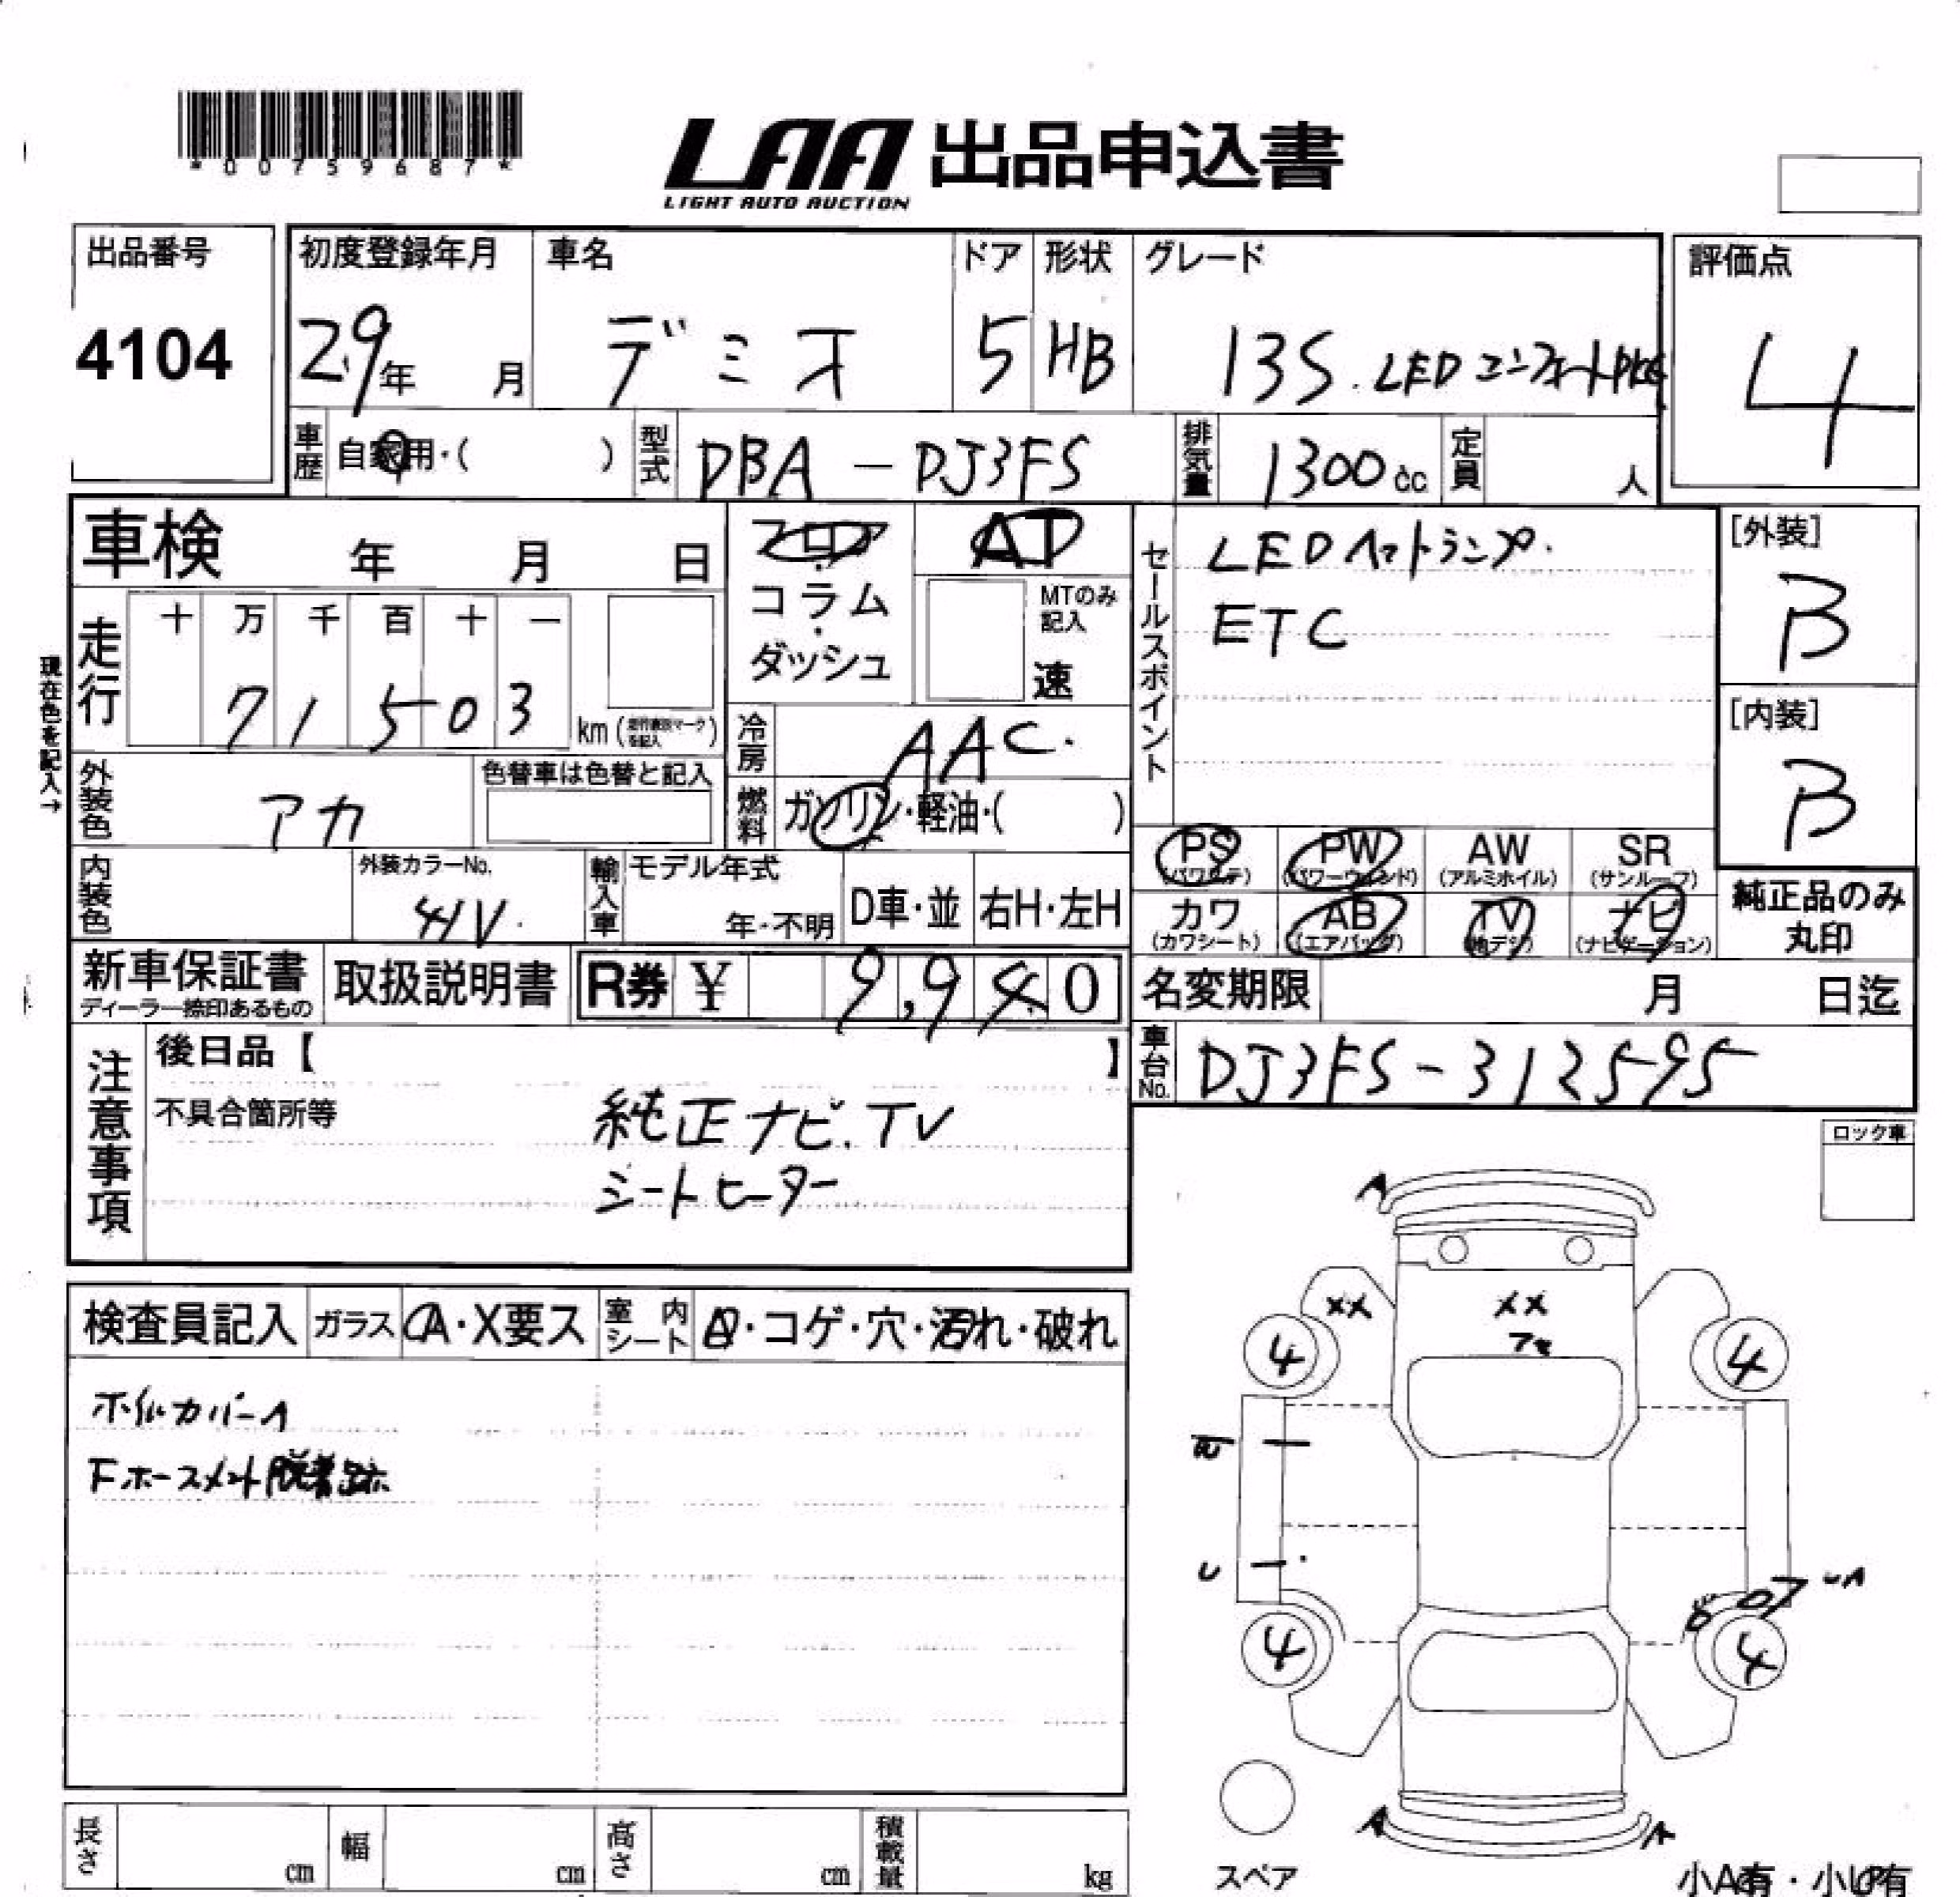 *00759687*
LAA 出品申込書
LIGHT AUTO AUCTION
出品番号
4104
初度登録年月
29年 月
車名
デミオ
ドア
5
形状
HB
グレード
13S. LED コンフォートPKG
評価点
4
車歴 自家用・( )
型式 DBA-DJ3FS
排気量 1300cc
定員 人
車検 年 月 日
フロア・コラム・ダッシュ
AT
MTのみ記入
速
現在色を記入→
走行
十 万 千 百 十 一
7 1 5 0 3
km
冷房 AAC.
燃料 ガソリン・軽油・( )
セールスポイント
LEDヘッドランプ.
ETC
[外装]
B
[内装]
B
外装色 アカ
色替車は色替と記入
内装色
外装カラーNo.
41V.
輸入車
モデル年式
年・不明
D車・並
右H・左H
PS PW AW SR
(パワステ) (パワーウィンド) (アルミホイル) (サンルーフ)
カワ AB TV ナビ
(カワシート) (エアバッグ) (地デジ) (ナビゲーション)
純正品のみ
丸印
新車保証書
ディーラー捺印あるもの
取扱説明書
R券 ¥ 9,940
名変期限 月 日迄
車台No. DJ3FS-312595
注意事項
後日品【 】
不具合箇所等
純正ナビ.TV
シートヒーター
ロック車
検査員記入 ガラス A・X要ス 室内シート・コゲ・穴・汚れ・破れ
ホイルカバーA
Fホースメント脱着跡
A
XX XX
4 4
U
UA
4 4
A A
スペア
小A有・小U有
長さ cm
幅 cm
高さ cm
積載量 kg